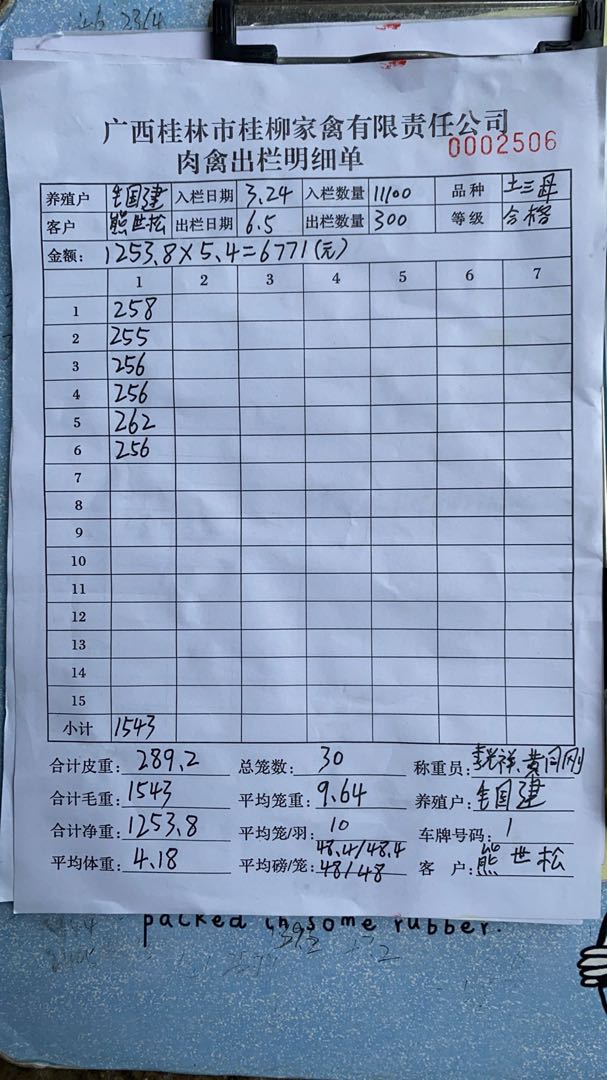 广西桂林市桂柳家禽有限责任公司
肉禽出栏明细单 0002506
养殖户 国建 入栏日期 3.24 入栏数量 11100 品种 土三
客户 熊世松 出栏日期 6.5 出栏数量 300 等级 合格
金额: 1253.8×5.4=6771(元)
1 2 3 4 5 6 7
1 258
2 255
3 256
4 256
5 262
6 256
7
8
9
10
11
12
13
14
15
小计 1543
合计皮重: 289.2 总笼数: 30 称重员: 祥、黄同刚
合计毛重: 1543 平均笼重: 9.64 养殖户: 国建
合计净重: 1253.8 平均笼/羽: 10 车牌号码: 1
平均体重: 4.18 平均磅/笼: 48.4/48.4 48/48 客 户: 熊世松
packed in some rubber.